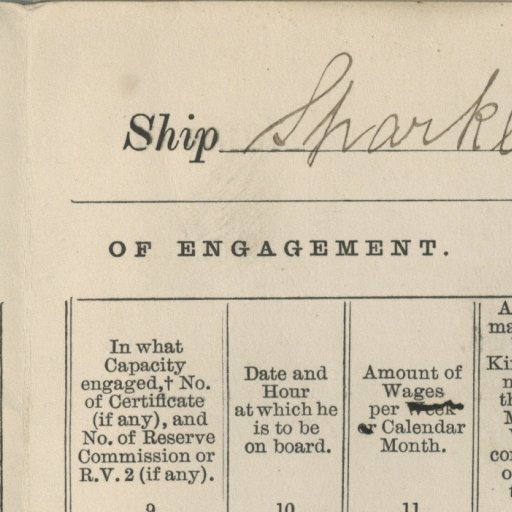 Ship
OF ENGAGEMENT.
In what
Capacity
engaged,† No.
of Certificate
(if any), and
No. of Reserve
Commission or
R.V. 2 (if any).
9
Date and
Hour
at which he
is to be
on board.
10
Amount of
Wages
per Week
or Calendar
Month.
11